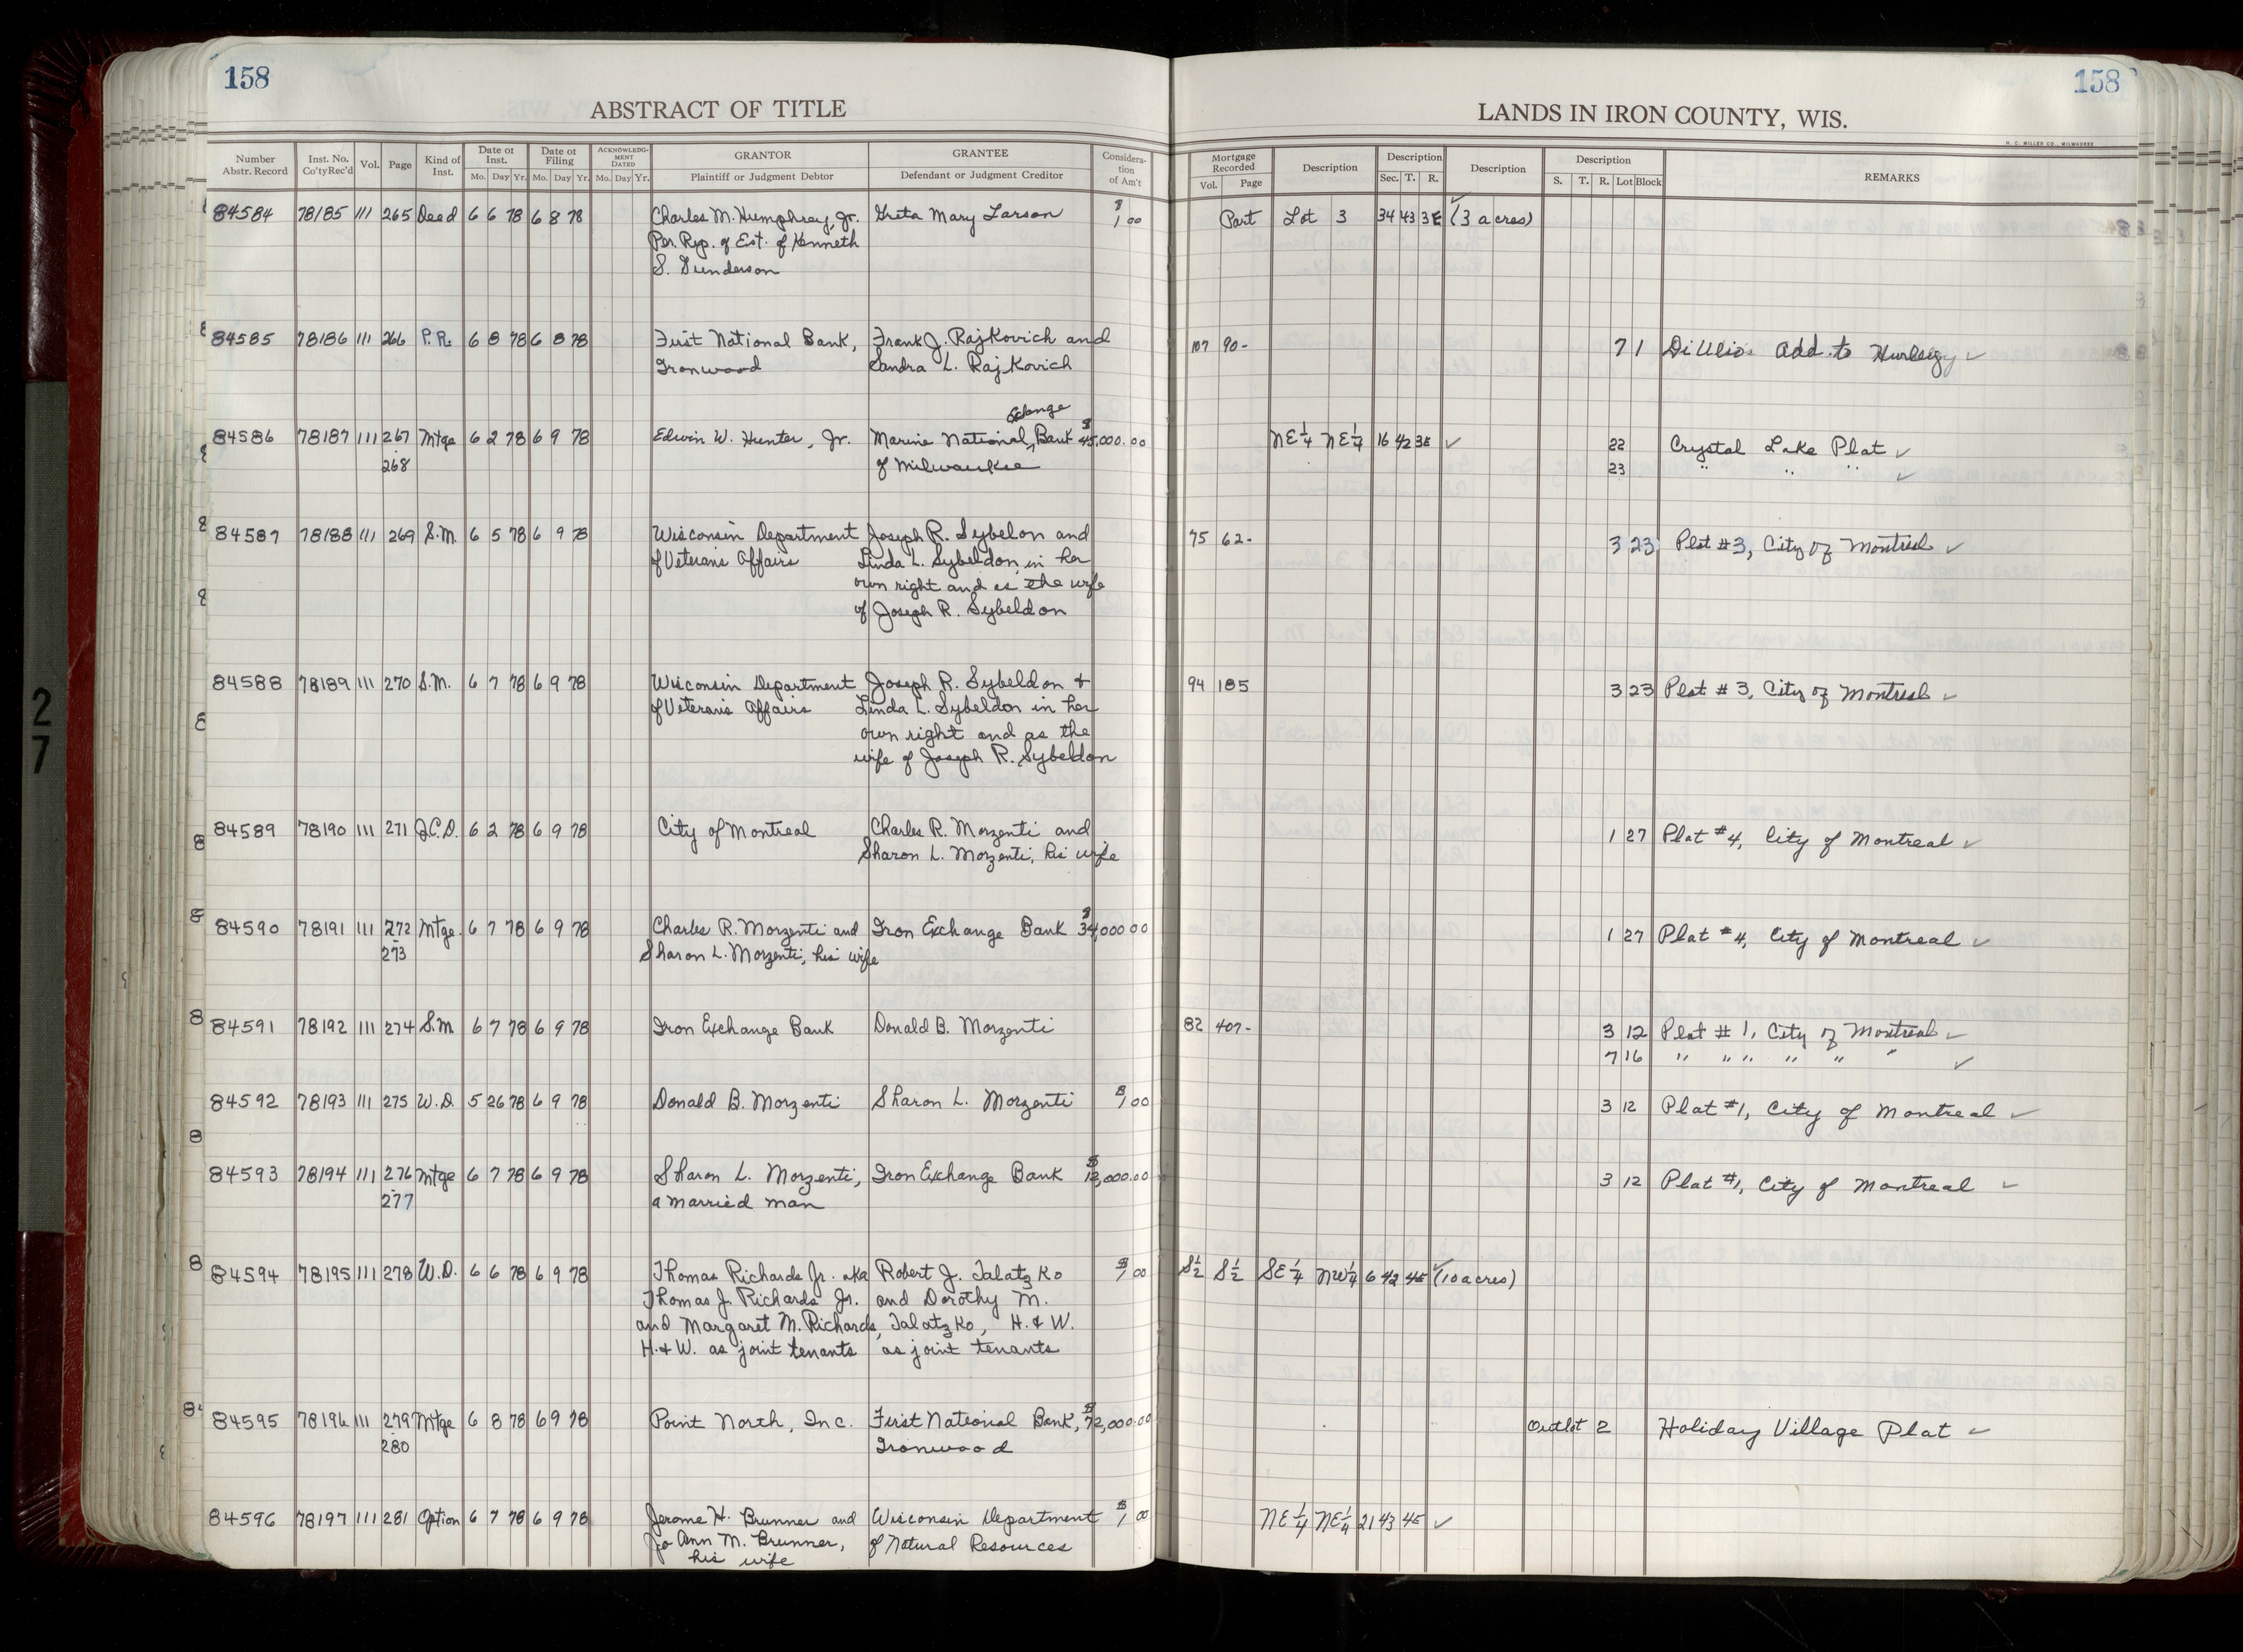 158
158
ABSTRACT OF TITLE
LANDS IN IRON COUNTY, WIS.
H. C. MILLER CO., MILWAUKEE
Number Abstr. Record Inst. No. Co'ty Rec'd Vol. Page Kind of Inst. Date of Inst. Mo. Day Yr. Date of Filing Mo. Day Yr. ACKNOWLEDGMENT DATED Mo. Day Yr. GRANTOR Plaintiff or Judgment Debtor GRANTEE Defendant or Judgment Creditor Consideration of Am't Mortgage Recorded Vol. Page Description Description Sec. T. R. Description Description S. T. R. Lot Block REMARKS
84584 78185 111 265 Deed 6 6 78 6 8 78 Charles M. Humphrey, Jr. Greta Mary Larson $1.00 Part Lot 3 34 43 3E (3 acres)
Per. Rep. of Est. of Kenneth
S. Gunderson
84585 78186 111 266 P.R. 6 8 78 6 8 78 First National Bank, Frank J. Rajkovich and 107 90- 7 1 DiUlio Add. to Hurley
Ironwood Sandra L. Rajkovich
Exchange
84586 78187 111 267 Mtge 6 2 78 6 9 78 Edwin W. Hunter, Jr. Marine National Bank $45,000.00 NE¼ NE¼ 16 42 3E 22 Crystal Lake Plat
268 of Milwaukee 23 " " "
84587 78188 111 269 S.M. 6 5 78 6 9 78 Wisconsin Department Joseph R. Sybelon and 75 62- 3 23 Plat #3, City of Montreal
of Veterans Affairs Linda L. Sybeldon, in her
own right and as the wife
of Joseph R. Sybeldon
84588 78189 111 270 S.M. 6 7 78 6 9 78 Wisconsin Department Joseph R. Sybeldon + 94 185 3 23 Plat #3, City of Montreal
of Veterans Affairs Linda L. Sybeldon in her
own right and as the
wife of Joseph R. Sybeldon
84589 78190 111 271 Q.C.D. 6 2 78 6 9 78 City of Montreal Charles R. Morzenti and 1 27 Plat #4, City of Montreal
Sharon L. Morzenti, his wife
84590 78191 111 272 Mtge. 6 7 78 6 9 78 Charles R. Morzenti and Iron Exchange Bank $34,000.00 1 27 Plat #4, City of Montreal
273 Sharon L. Morzenti, his wife
84591 78192 111 274 S.M. 6 7 78 6 9 78 Iron Exchange Bank Donald B. Morzenti 82 407- 3 12 Plat #1, City of Montreal
7 16 " " " " " "
84592 78193 111 275 W.D. 5 26 78 6 9 78 Donald B. Morzenti Sharon L. Morzenti $1.00 3 12 Plat #1, City of Montreal
84593 78194 111 276 Mtge 6 7 78 6 9 78 Sharon L. Morzenti, Iron Exchange Bank $12,000.00 3 12 Plat #1, City of Montreal
277 a married man
84594 78195 111 278 W.D. 6 6 78 6 9 78 Thomas Richards Jr. aka Robert J. Talatzko $1.00 S½ S½ SE¼ NW¼ 6 42 4E (10 acres)
Thomas J. Richards Jr. and Dorothy M.
and Margaret M. Richards, Talatzko, H. & W.
H. & W. as joint tenants as joint tenants
84595 78196 111 279 Mtge 6 8 78 6 9 78 Point North, Inc. First National Bank, $72,000.00 Outlot 2 Holiday Village Plat
280 Ironwood
84596 78197 111 281 Option 6 7 78 6 9 78 Jerome H. Brunner and Wisconsin Department $1.00 NE¼ NE¼ 21 43 4E
Jo Ann M. Brunner, of Natural Resources
his wife
27